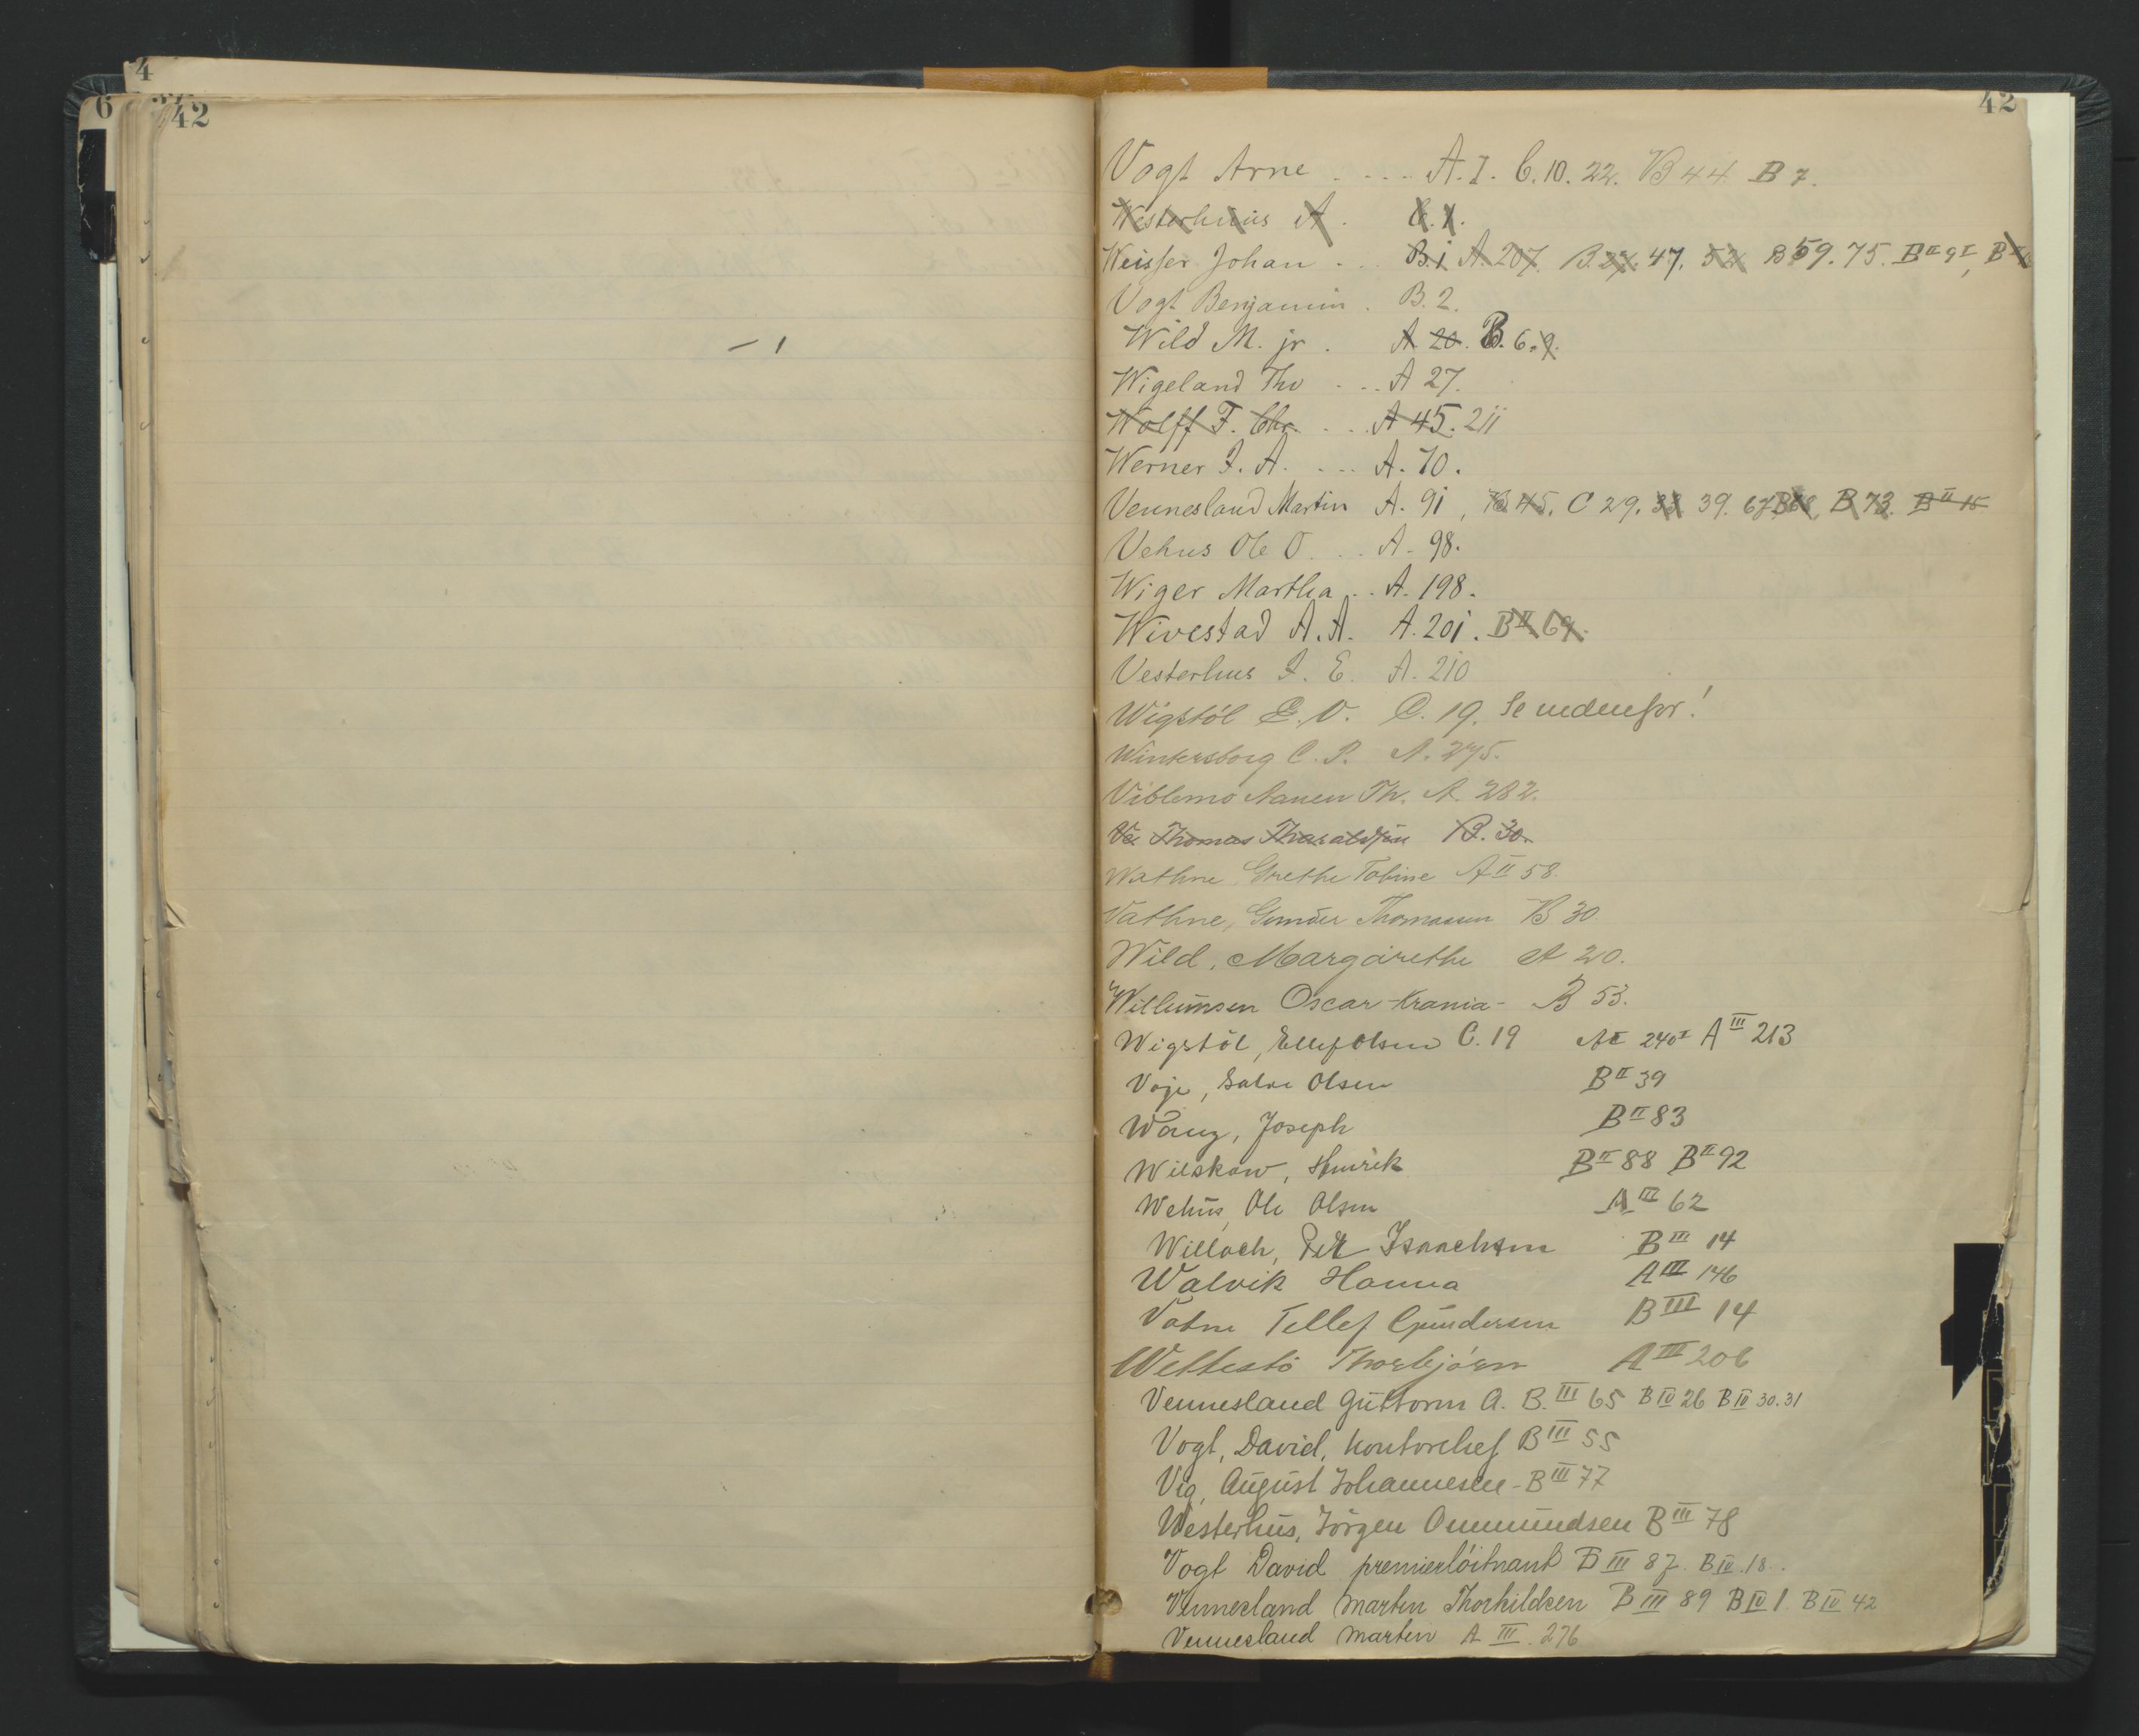 4
6
42
42
Vogt Arne . . . . A. I. C. 10. 22. B 44 B 7.
Westerhuus A . C. 1.
Weisser Johan . . B. 1 A. 207. B. 27. 47. 52 B 59. 75. B II 9 I, B II
Vogt Benjamin . B. 2.
Wild M. jr . A 20. B. 6. 9.
Wigeland Tho . . . A 27.
Wolff F. Chr. . . . A 45. 211
Werner J. A. . . . A. 70.
Vennesland Martin A. 91, B 45. C 29. 33 39. 67 B 68, B 73. B II 15
Vehus Ole O . . . A. 98.
Wiger Martha . . A. 198.
Wivestad A. A. A. 201. B II 69.
Vesterhus J. E. A. 210
Wigstøl E. O. C. 19. Se nedenfor!
Wintersborg C. P. A. 275.
Viblemo Aanen Th. A. 282.
Thomas Tharaldsen B. 30.
Wathne, Grethe Tobine A II 58.
Vathne, Gunder Thomassen B 30
Wild, Margarethe A 20.
Willumsen Oscar - Krania - B 53.
Wigstøl, Ellef Olsen C. 19 A II 240 I A III 213
Voje, Salve Olsen B II 39
Wang, Joseph B II 83
Wilskow, Henrik B II 88 B II 92
Wehus, Ole Olsen A III 62
Willoch, Peter Isaachsen B III 14
Walvik Hanna A III 146
Vatne Tellef Gundersen B III 14
Thorbjörn A III 206
Vennesland Guttorm A. B. III 65 B IV 26 B IV 30. 31
Vogt, David, kontorchef B III 55
Vig, August Johannesen - B III 77
Westerhus, Jörgen Ommundsen B III 78
Vogt David premierlöitnant B III 87. B IV. 18.
Vennesland Marten Thorkildsen B III 89 B IV 1 B IV 42
Vennesland Marten A III. 276